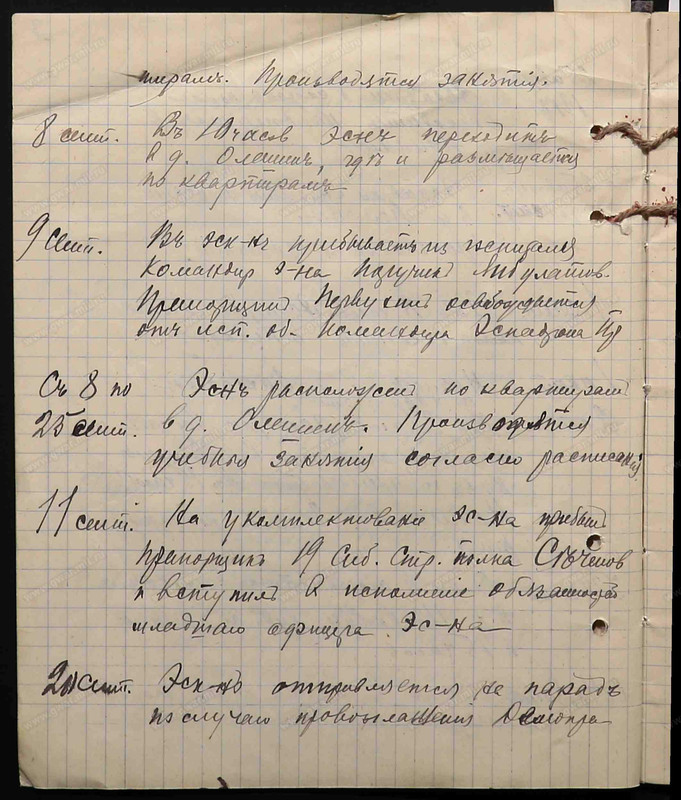 тирамъ. Производятся занятія.
8 сент. Въ 10 часов эснъ переходитъ
в д. Олешин, гдѣ и размещается
по квартирамъ
9 Сент. Въ эск-нъ прибываетъ из госпиталя
Командир э-на Поручик
Прапорщик Первухин освобождается
отъ исп. об. Командира Эскадрона
Съ 8 по Эснъ расположен по квартирам
25 сент. в д. Олешин. Производятся
учебныя занятія согласно расписанія
11 сент. На укомплектованіе эс-на прибыл
Прапорщикъ 19 Сиб. Стр. полка
и вступил в исполненіе обязанностей
младшаго офицера Эс-на
сент. Эск-нъ отправляется на парадъ
по случаю провозглашенія